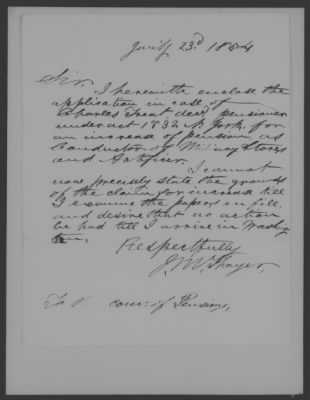 Jan'y 23d 1854
Sir,
I herewith enclose the
application in case of
Charles Treat decd pensioner
under act 1832 N. York, for
an increase of pension, as
Conductor of Military Stores
and Artificer. I cannot
now precisely state the grounds
of the claim for increase till
I examine the papers on file,
and desire that no action
be had till I arrive in Washing
ton,
Respectfully
J. M. Thayer,
To comr. of Pensions,